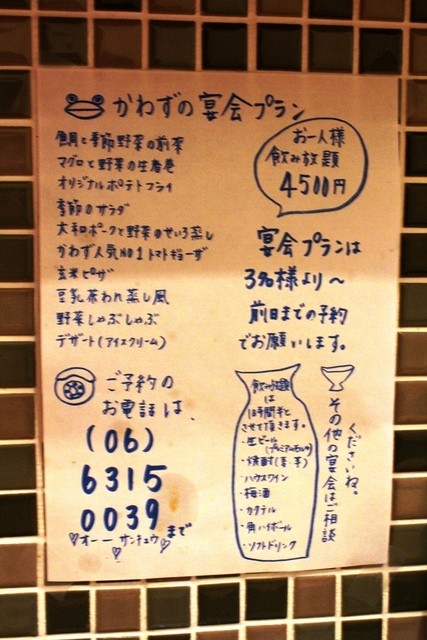 かわずの宴会プラン
鯛と季節野菜の前菜
マグロと野菜の生春巻
オリジナルポテトフライ
季節のサラダ
大和ポークと野菜のせいろ蒸し
かわず人気NO1トマトギョーザ
玄米ピザ
豆乳茶わん蒸し風
野菜しゃぶしゃぶ
デザート(アイスクリーム)
お一人様
飲み放題
4500円
宴会プランは
3名様より〜
前日までの予約
でお願いします。
ご予約の
お電話は、
(06)
6315
0039
まで
オー ー サンキュウ
飲み放題
は
1日時間半と
させて頂きます。
・生ビール
(プレミアムモルツ)
・焼酎(麦・芋)
・ハウスワイン
・梅酒
・カクテル
・角ハイボール
・ソフトドリンク
その他の宴会はご相談
くださいね。